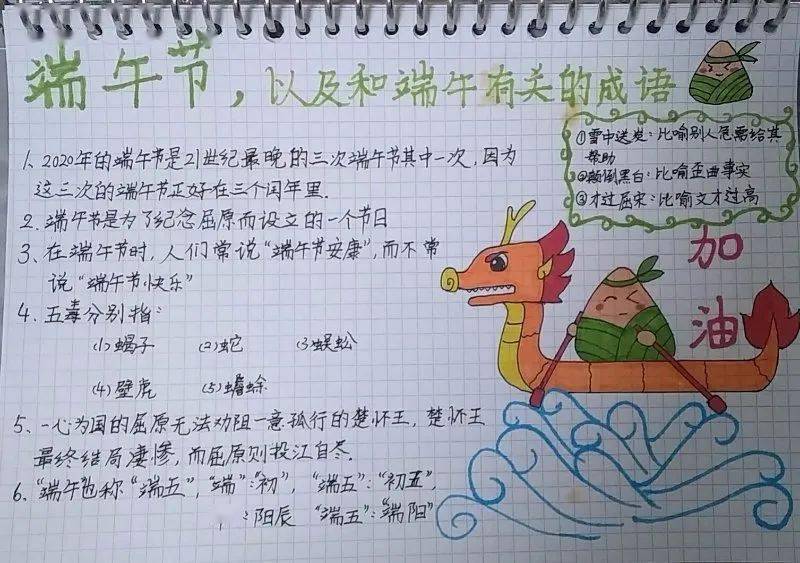 端午节，以及和端午有关的成语
1、2020年的端午节是21世纪最晚的三次端午节其中一次，因为
这三次的端午节正好在三个闰年里.
2、端午节是为了纪念屈原而设立的一个节日
3、在端午节时，人们常说“端午节安康”，而不常
说“端午节快乐”
4、五毒分别指：
(1)蝎子 (2)蛇 (3)蜈蚣
(4)壁虎 (5)蟾蜍
5、一心为国的屈原无法劝阻一意孤行的楚怀王，楚怀王
最终结局凄惨，而屈原则投江自尽.
6、“端午”也称“端五”，“端”：“初”，“端五”：“初五”，
：阳辰 “端五”：“端阳”
①雪中送炭：比喻别人急需给其
帮助
②颠倒黑白：比喻歪曲事实
③才过屈宋：比喻文才过高
加
油